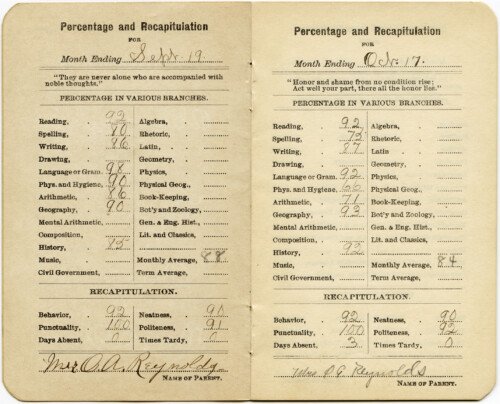 Percentage and Recapitulation
FOR
Month Ending Sept. 19
"They are never alone who are accompanied with
noble thoughts."
PERCENTAGE IN VARIOUS BRANCHES.
Reading, 92 Algebra,
Spelling, 80 Rhetoric,
Writing, 86 Latin,
Drawing, Geometry,
Language or Gram. 98 Physics,
Phys. and Hygiene, 90 Physical Geog.,
Arithmetic, 86 Book-Keeping,
Geography, 90 Bot'y and Zoology,
Mental Arithmetic, Gen. & Eng. Hist.,
Composition, Lit. and Classics,
History, 85
Music, Monthly Average, 88
Civil Government, Term Average,
RECAPITULATION.
Behavior, 92 Neatness, 90
Punctuality, 100 Politeness, 91
Days Absent, 0 Times Tardy, 0
Mrs O. A. Reynolds
NAME OF PARENT.
Percentage and Recapitulation
FOR
Month Ending Oct. 17.
"Honor and shame from no condition rise;
Act well your part, there all the honor lies."
PERCENTAGE IN VARIOUS BRANCHES.
Reading, 92 Algebra,
Spelling, 75 Rhetoric,
Writing, 87 Latin,
Drawing, Geometry,
Language or Gram. 92 Physics,
Phys. and Hygiene, 66 Physical Geog.,
Arithmetic, 71 Book-Keeping,
Geography, 93 Bot'y and Zoology,
Mental Arithmetic, Gen. & Eng. Hist.,
Composition, Lit. and Classics,
History, 92
Music, Monthly Average, 84
Civil Government, Term Average,
RECAPITULATION.
Behavior, 92 Neatness, 90
Punctuality, 100 Politeness, 92
Days Absent, 3 Times Tardy, 0
Mrs Reynolds
NAME OF PARENT.